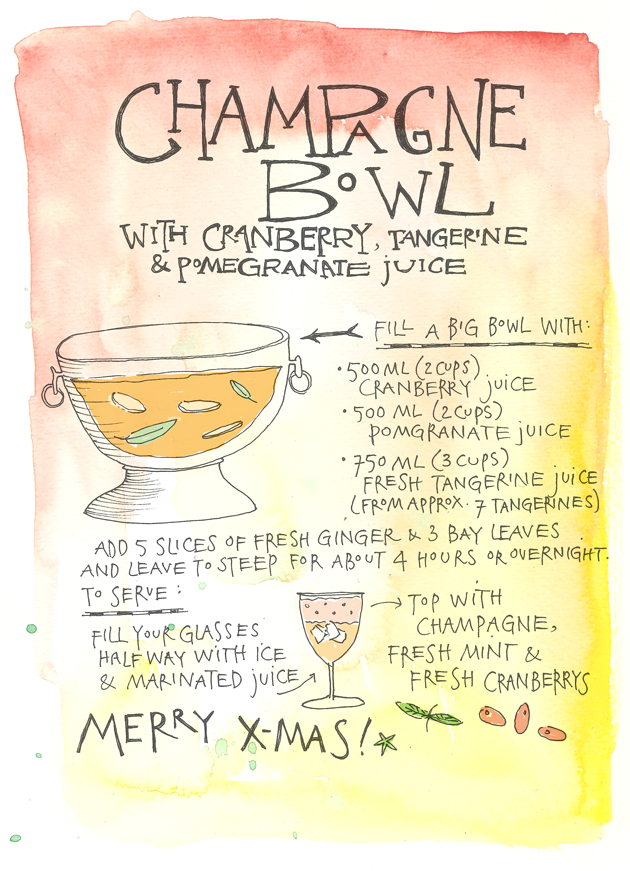 CHAMPAGNE
BOWL
WITH CRANBERRY, TANGERINE
& POMEGRANATE JUICE
FILL A BIG BOWL WITH:
• 500 ML (2 CUPS)
CRANBERRY JUICE
• 500 ML (2 CUPS)
POMGRANATE JUICE
• 750 ML (3 CUPS)
FRESH TANGERINE JUICE
(FROM APPROX. 7 TANGERINES)
ADD 5 SLICES OF FRESH GINGER & 3 BAY LEAVES
AND LEAVE TO STEEP FOR ABOUT 4 HOURS OR OVERNIGHT.
TO SERVE:
FILL YOUR GLASSES
HALF WAY WITH ICE
& MARINATED JUICE
TOP WITH
CHAMPAGNE,
FRESH MINT &
FRESH CRANBERRYS
MERRY X-MAS!